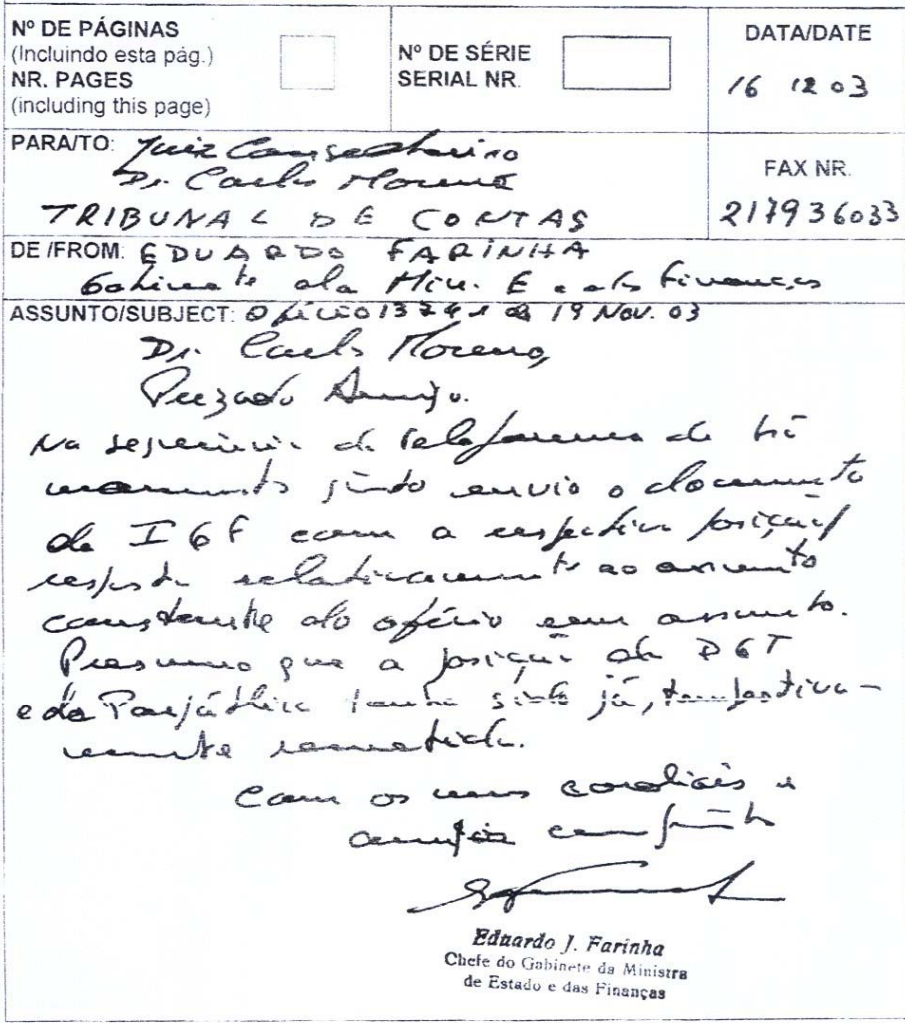 Nº DE PÁGINAS
(Incluindo esta pág.)
NR. PAGES
(including this page)
Nº DE SÉRIE
SERIAL NR.
DATA/DATE
16 12 03
PARA/TO: Juiz Conselheiro
Dr. Carlos Moreno
TRIBUNAL DE CONTAS
FAX NR.
217936033
DE /FROM: EDUARDO FARINHA
Gabinete da Min. E. e das Finanças
ASSUNTO/SUBJECT: Ofício de 19 Nov. 03
Dr. Carlos Moreno,
Prezado Amigo.
Na sequência de telefonema de há
momentos junto envio o documento
da IGF com a respectiva posição/
resposta relativamente ao assunto
constante do ofício em assunto.
Presumo que a posição da DGT
e da Parpública tenha sido já, tempestiva-
mente remetida.
Com os meus cordiais e
amigos cumprimentos
Eduardo J. Farinha
Chefe do Gabinete da Ministra
de Estado e das Finanças